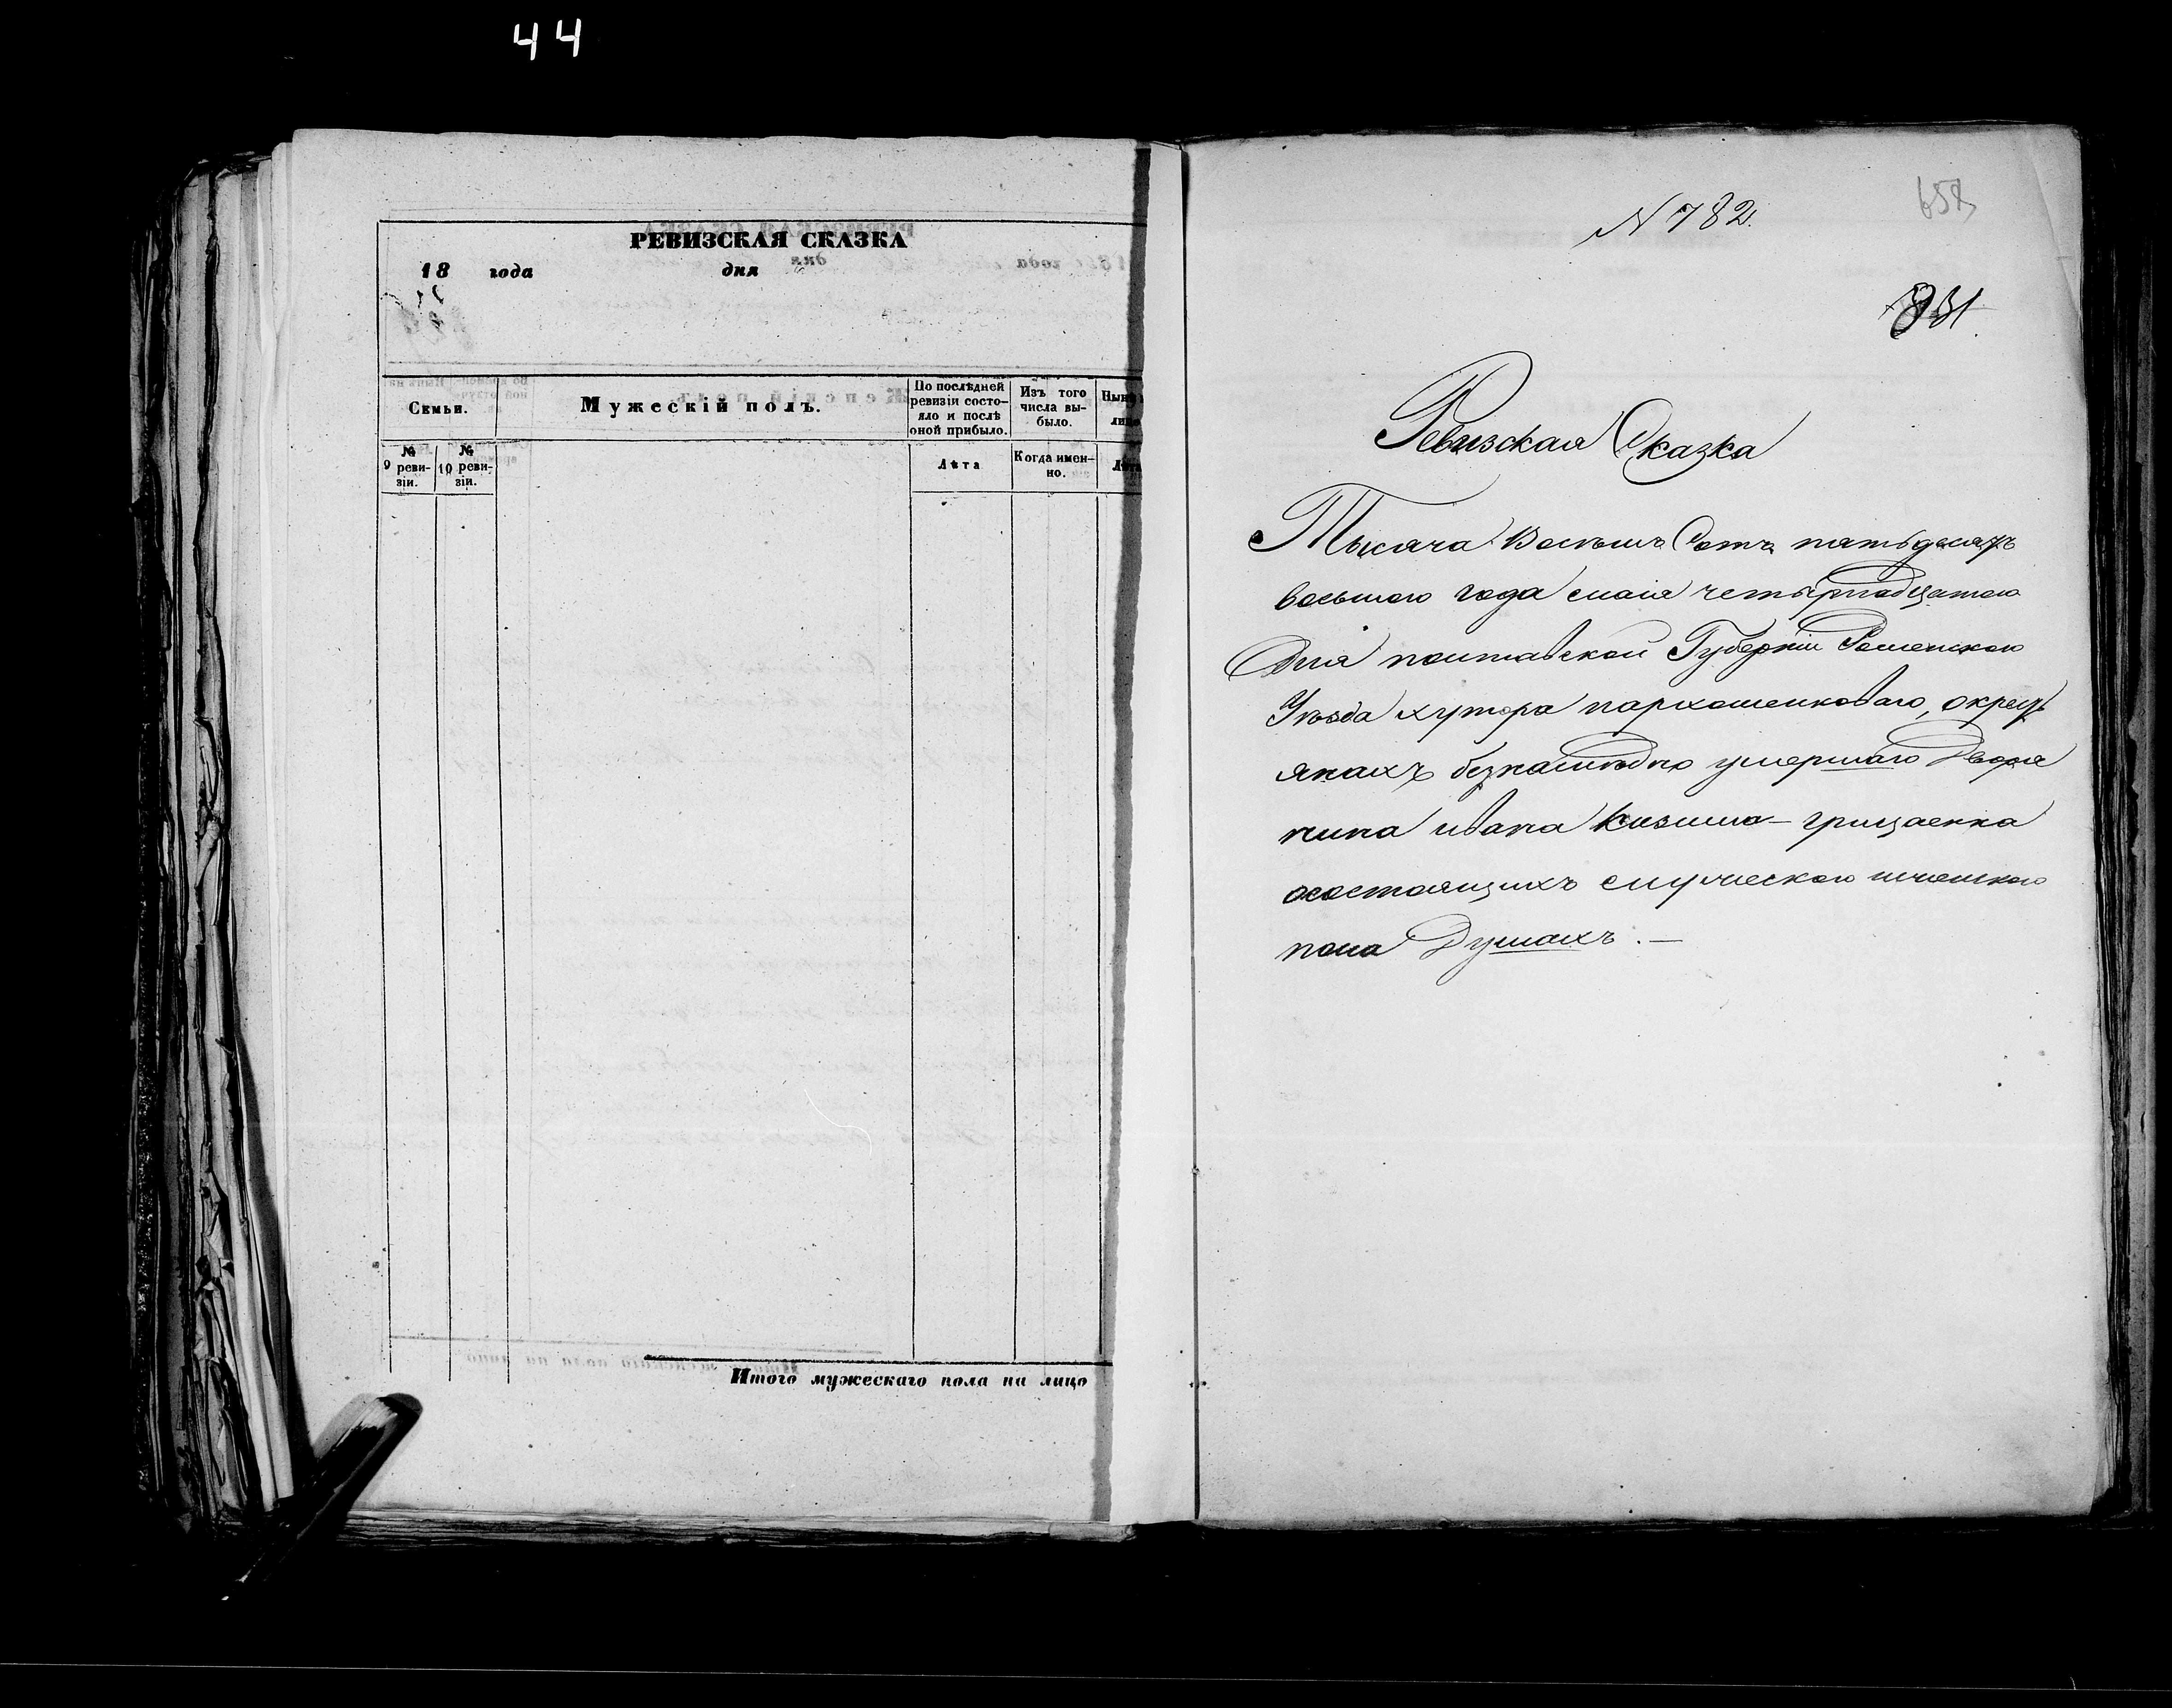 44
РЕВИЗСКАЯ СКАЗКА
18 года дня
Семьи.
Мужескій полъ.
По послѣдней ревизіи состояло и послѣ оной прибыло.
Изъ того числа выбыло.
№ 9 ревизіи.
№ 10 ревизіи.
Лѣта
Когда именно.
Итого мужескаго пола на лицо
N 782.
831
Ревизская Сказка
Тысяча Восемъ Сотъ пятьдесятъ
восьмого года мая четырнадцатого
Дня полтавской Губерніи Роменского
Уѣзда хутора пархоменковаго, о крест
янахъ безнаслѣдно умершаго Дворя
нина ивана Кизима-грицаенка
осостоящихъ мужеского иженского
пола Душахъ.—